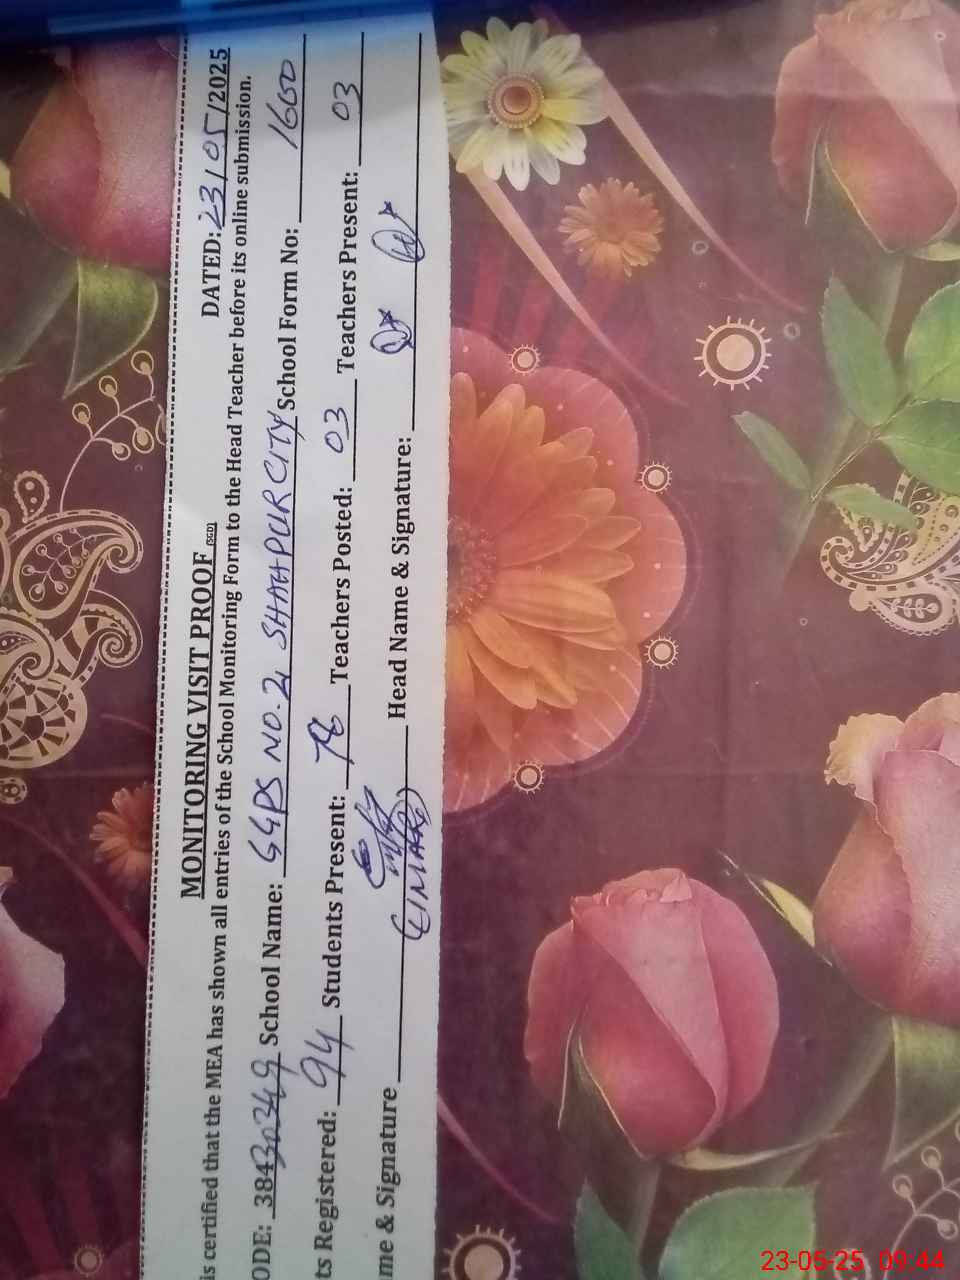 MONITORING VISIT PROOF (SGD) DATED: 23/05/2025
is certified that the MEA has shown all entries of the School Monitoring Form to the Head Teacher before its online submission.
ODE: 38430349 School Name: GGPS NO.2, SHAHPUR CITY School Form No: 1660
ts Registered: 94 Students Present: 78 Teachers Posted: 03 Teachers Present: 03
me & Signature Head Name & Signature:
23-05-25 09:44